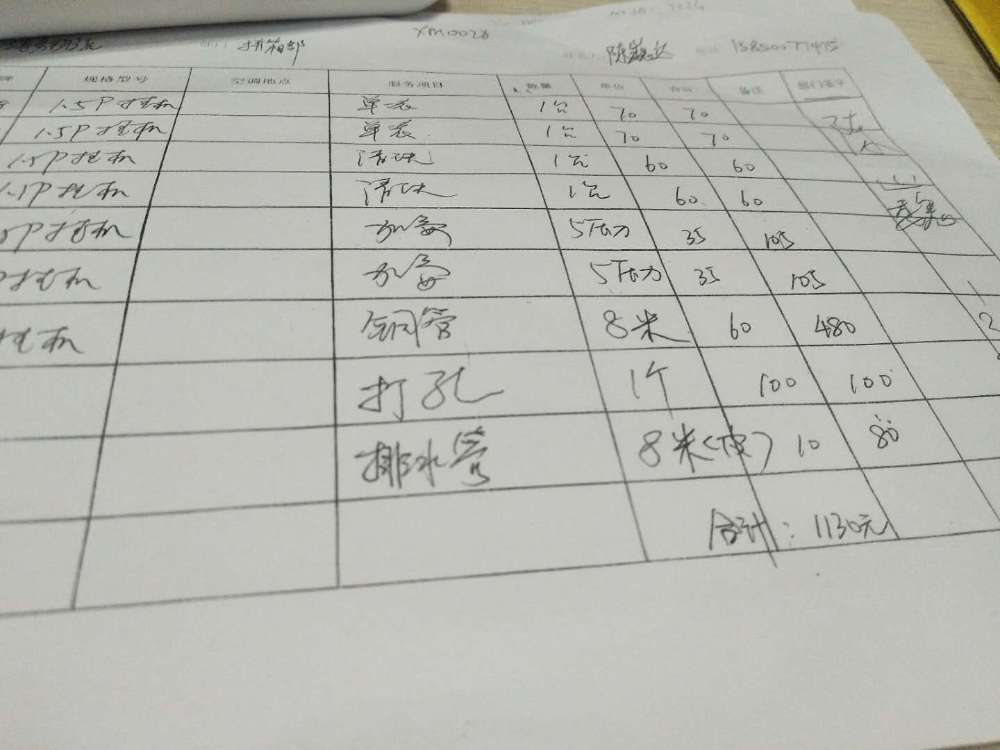 拼箱部 XM0026 15850077475
规格型号 空调地点 服务项目 数量 单价 合计 备注
1.5P挂机 单装 1台 70 70
1.5P挂机 单装 1台 70 70
1.5P挂机 清洗 1台 60 60
1.5P挂机 清洗 1台 60 60
P挂机 加氟 5压力 35 105
挂机 加氟 5压力 35 105
挂机 铜管 8米 60 480
打孔 1个 100 100
排水管 8米 10 80
合计:1130元